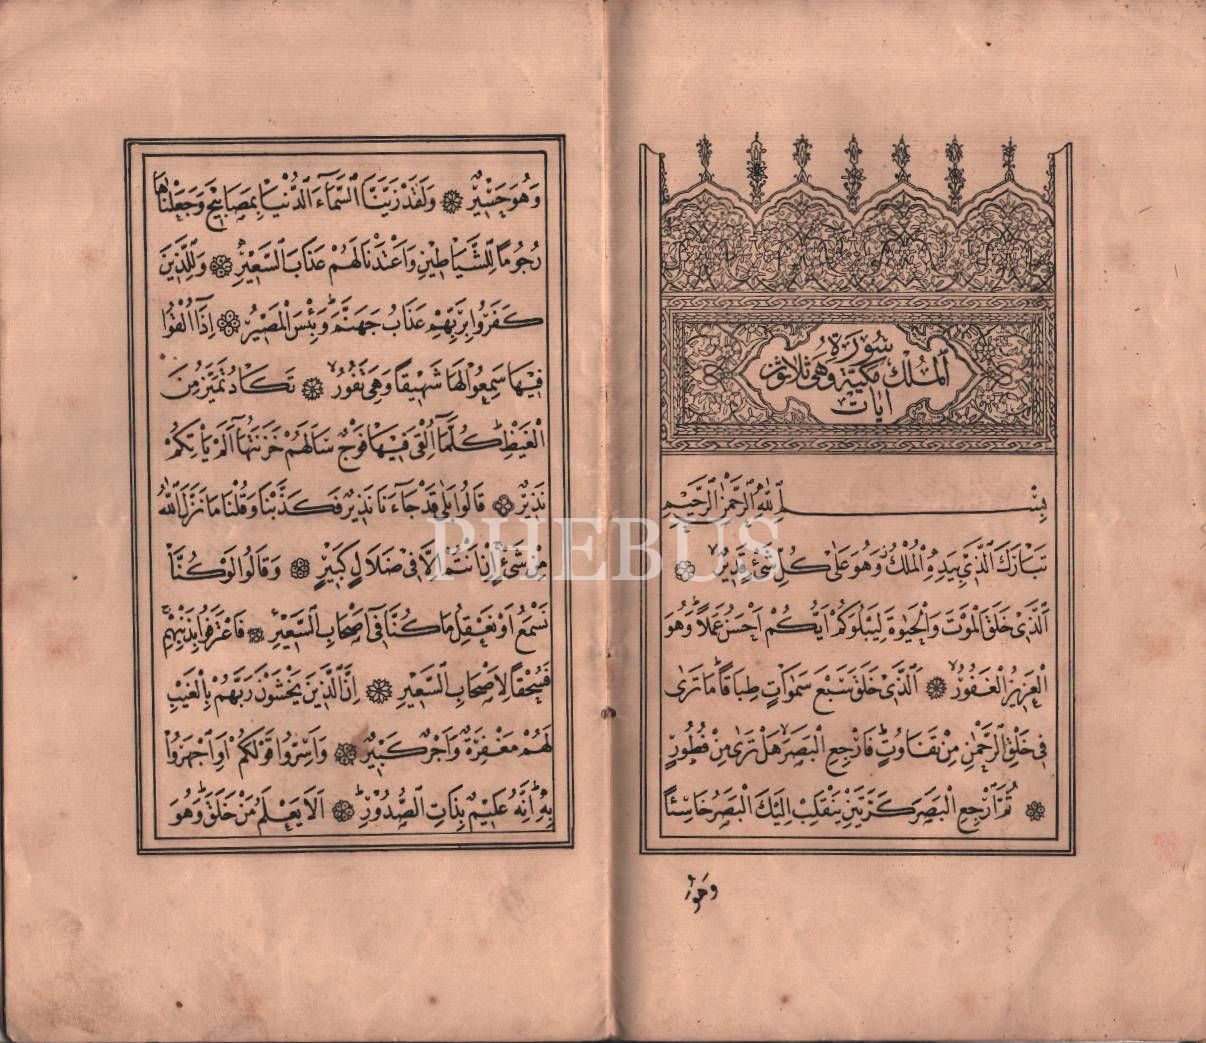 سورة
الملك مكية وهي ثلاثون
آيات
بِسْمِ اللّٰهِ الرَّحْمٰنِ الرَّحِيمِ
تَبَارَكَ الَّذِي بِيَدِهِ الْمُلْكُ وَهُوَ عَلٰى كُلِّ شَيْءٍ قَدِيرٌۙ
اَلَّذِي خَلَقَ الْمَوْتَ وَالْحَيٰوةَ لِيَبْلُوَكُمْ اَيُّكُمْ اَحْسَنُ عَمَلًاۜ وَهُوَ
الْعَزِيزُ الْغَفُورُۙ اَلَّذِي خَلَقَ سَبْعَ سَمٰوَاتٍ طِبَاقًاۜ مَا تَرٰى
فِي خَلْقِ الرَّحْمٰنِ مِنْ تَفَاوُتٍۜ فَارْجِعِ الْبَصَرَۙ هَلْ تَرٰى مِنْ فُطُورٍ
ثُمَّ ارْجِعِ الْبَصَرَ كَرَّتَيْنِ يَنْقَلِبْ اِلَيْكَ الْبَصَرُ خَاسِئًا
وَهُوَ
وَهُوَ حَسِيرٌ وَلَقَدْ زَيَّنَّا السَّمَاءَ الدُّنْيَا بِمَصَابِيحَ وَجَعَلْنَاهَا
رُجُومًا لِلشَّيَاطِينِ وَاَعْتَدْنَا لَهُمْ عَذَابَ السَّعِيرِ وَلِلَّذِينَ
كَفَرُوا بِرَبِّهِمْ عَذَابُ جَهَنَّمَۜ وَبِئْسَ الْمَصِيرُ اِذَا اُلْقُوا
فِيهَا سَمِعُوا لَهَا شَهِيقًا وَهِيَ تَفُورُۙ تَكَادُ تَمَيَّزُ مِنَ
الْغَيْظِۜ كُلَّمَا اُلْقِيَ فِيهَا فَوْجٌ سَاَلَهُمْ خَزَنَتُهَا اَلَمْ يَأْتِكُمْ
نَذِيرٌ قَالُوا بَلٰى قَدْ جَاءَنَا نَذِيرٌ فَكَذَّبْنَا وَقُلْنَا مَا نَزَّلَ اللّٰهُ
مِنْ شَيْءٍۚ اِنْ اَنْتُمْ اِلَّا فِي ضَلَالٍ كَبِيرٍ وَقَالُوا لَوْ كُنَّا
نَسْمَعُ اَوْ نَعْقِلُ مَا كُنَّا فِي اَصْحَابِ السَّعِيرِ فَاعْتَرَفُوا بِذَنْبِهِمْۚ
فَسُحْقًا لِاَصْحَابِ السَّعِيرِ اِنَّ الَّذِينَ يَخْشَوْنَ رَبَّهُمْ بِالْغَيْبِ
لَهُمْ مَغْفِرَةٌ وَاَجْرٌ كَبِيرٌ وَاَسِرُّوا قَوْلَكُمْ اَوِ اجْهَرُوا
بِهِۜ اِنَّهُ عَلِيمٌ بِذَاتِ الصُّدُورِ اَلَا يَعْلَمُ مَنْ خَلَقَۜ وَهُوَ
PHEBUS